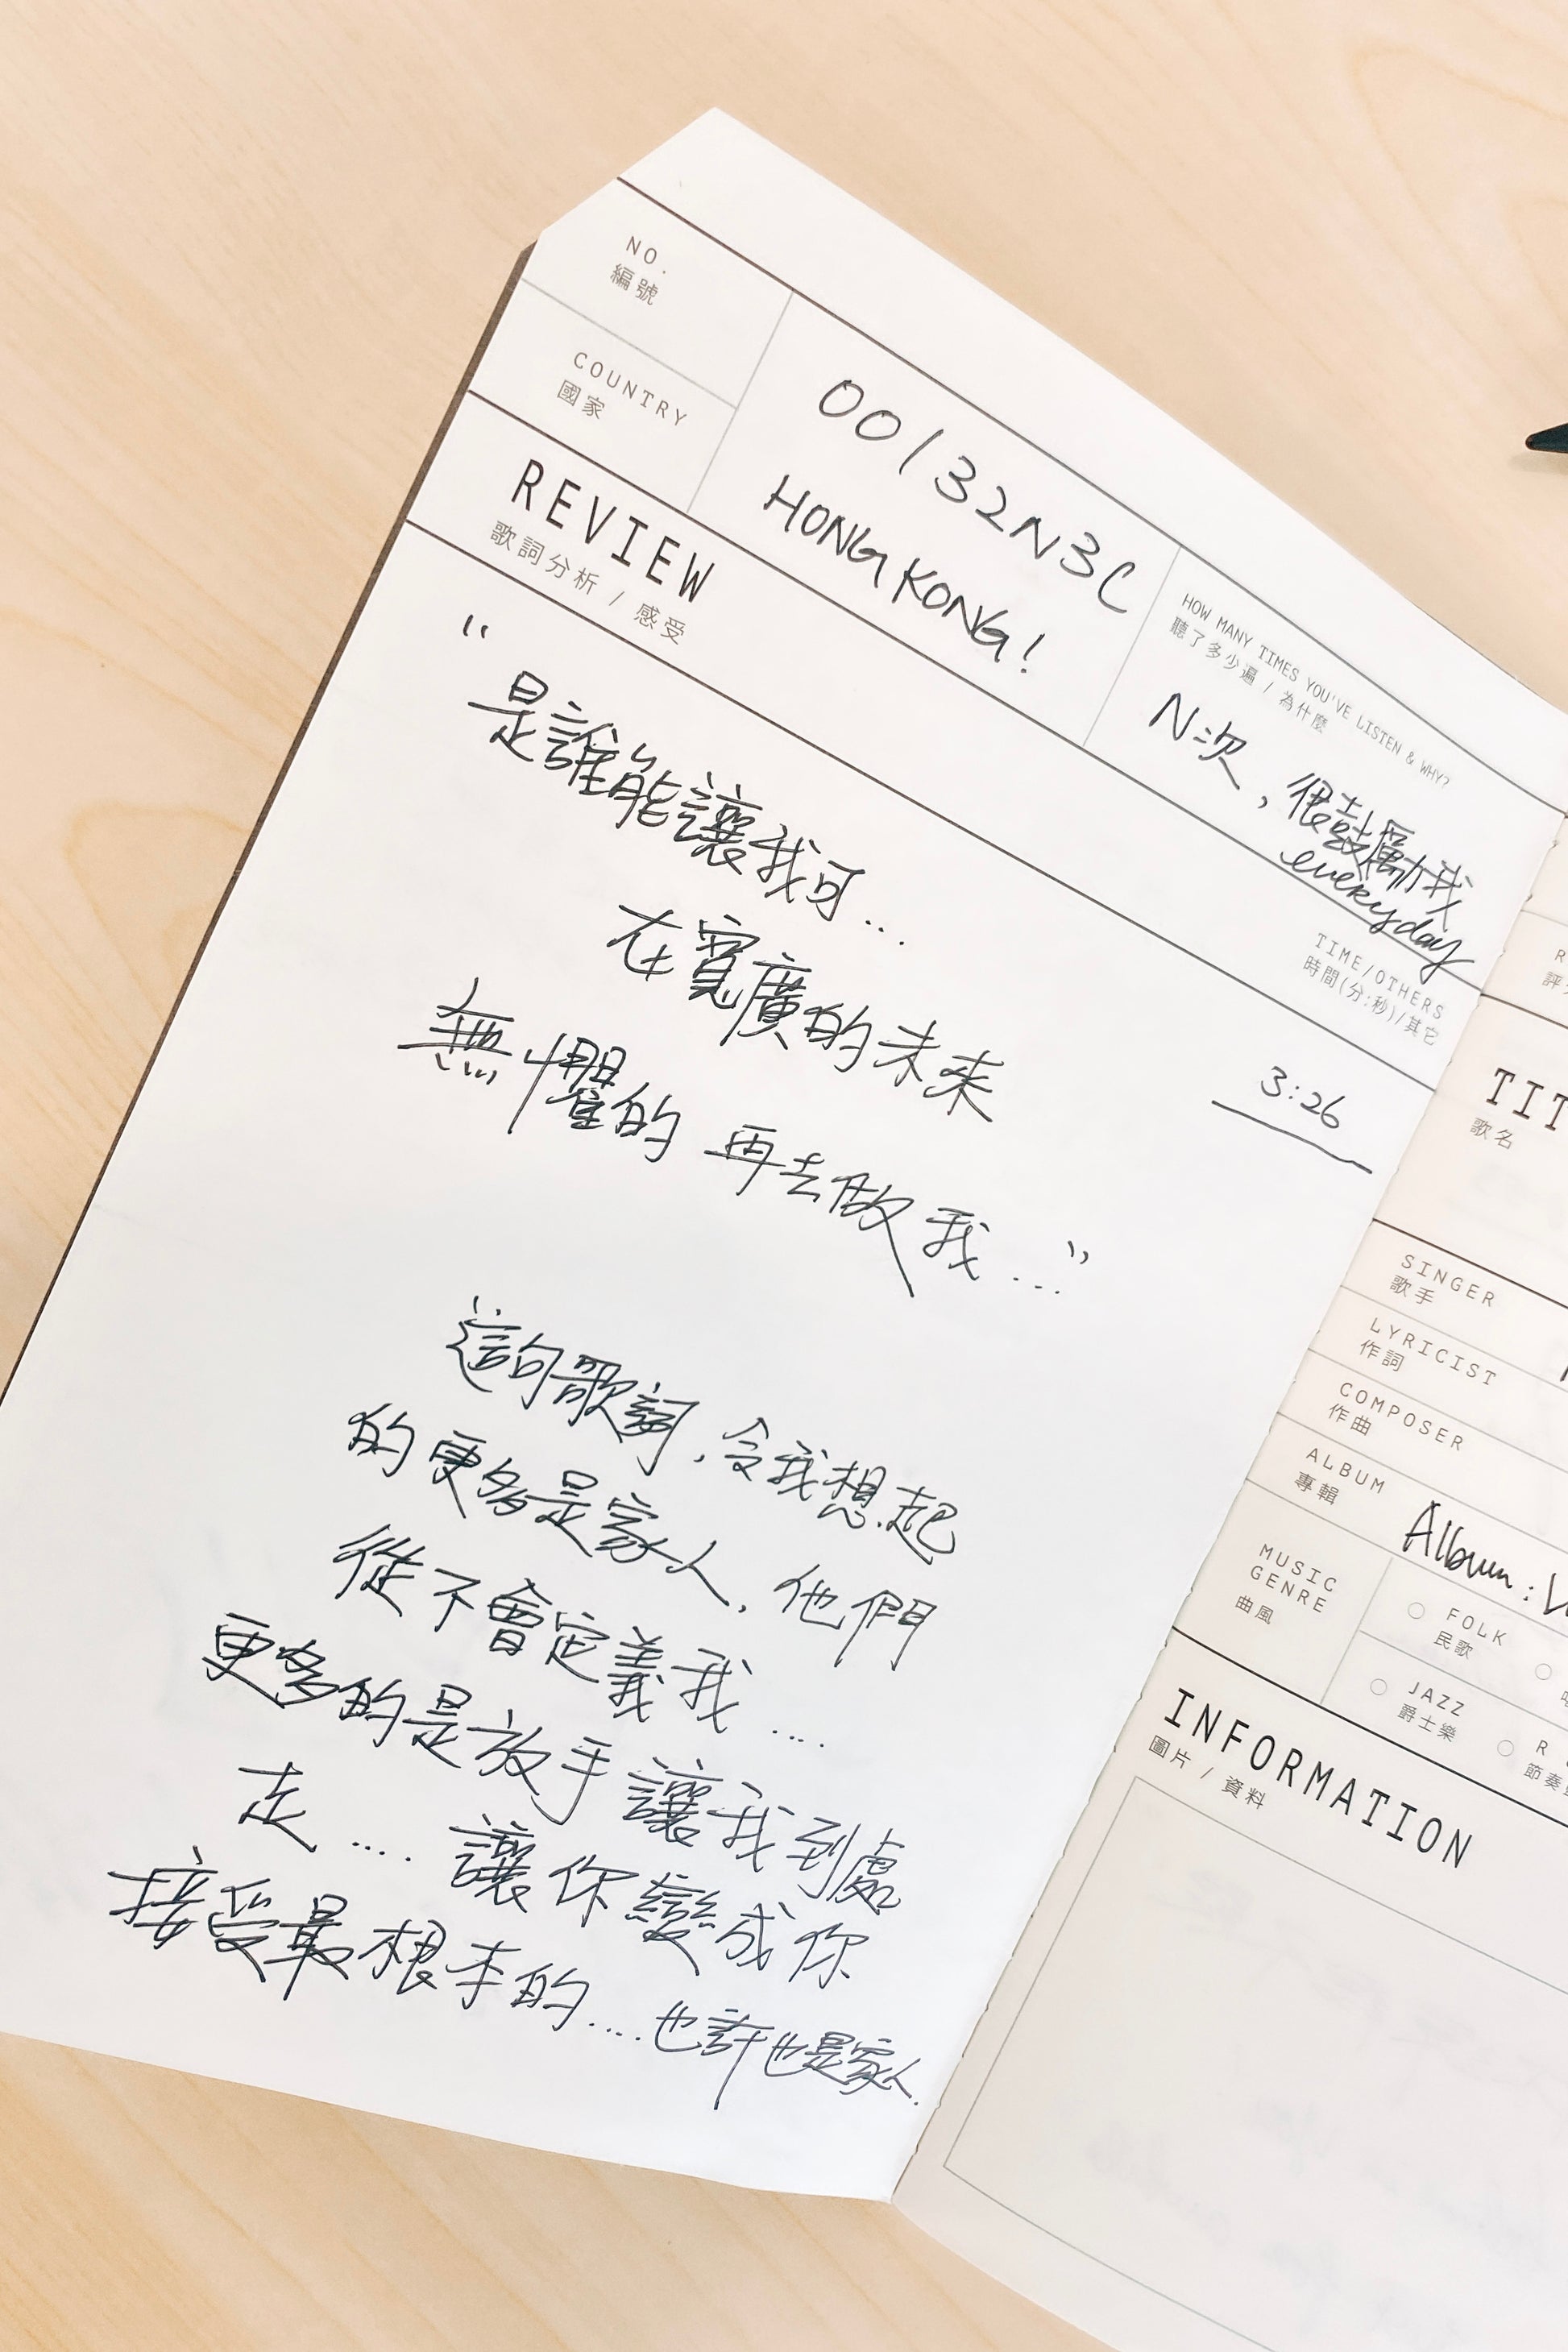 NO.
編號
00132N3C
COUNTRY
國家
HONG KONG!
HOW MANY TIMES YOU'VE LISTEN & WHY?
聽了多少遍 / 為什麼
N次，很鼓勵我
everyday
REVIEW
歌詞分析 / 感受
TIME/OTHERS
時間(分:秒)/其它
3:26
“
是誰能讓我可...
在寬廣的未來
無懼的 再去做我...”
這句歌詞，令我想起
的更多是家人，他們
從不會定義我....
更多的是放手讓我到處
走....讓你變成你
接受最根本的....也許也是家人.
R
評
TIT
歌名
SINGER
歌手
LYRICIST
作詞
COMPOSER
作曲
ALBUM
專輯
Album:
MUSIC
GENRE
曲風
FOLK
民歌
JAZZ
爵士樂
R
節奏
INFORMATION
圖片 / 資料